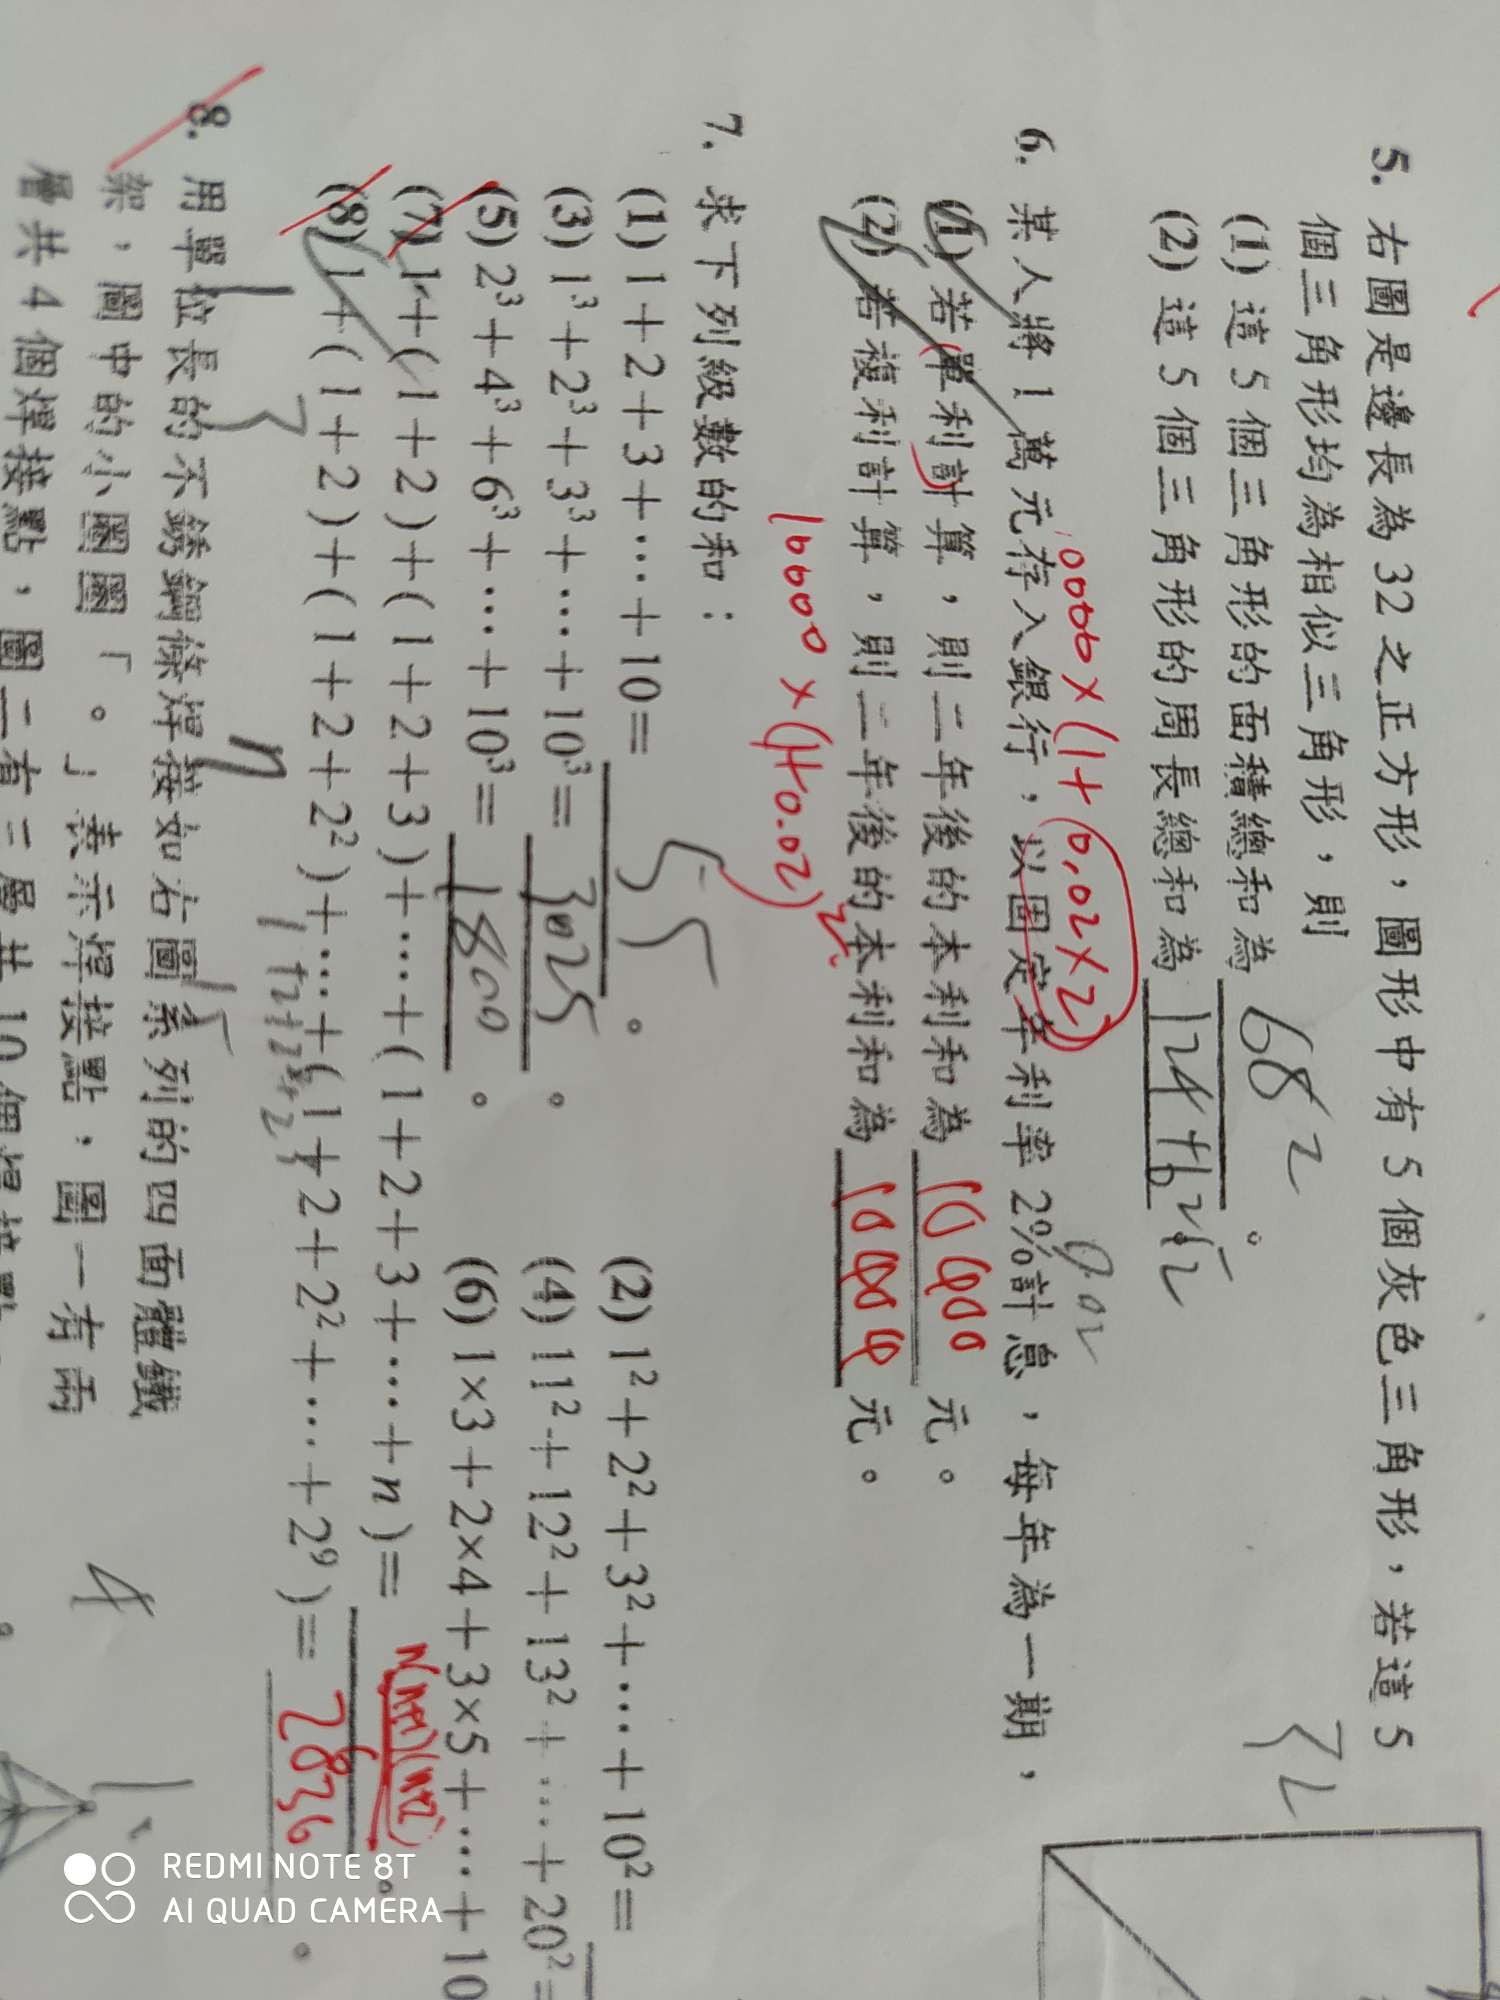 5. 右圖是邊長為 32 之正方形，圖形中有 5 個灰色三角形，若這 5
個三角形均為相似三角形，則
(1) 這 5 個三角形的面積總和為 682 。
(2) 這 5 個三角形的周長總和為
32
6. 某人將 1 萬元存入銀行，以固定年利率 2%計息，每年為一期，
0.02
10000×(1+0.02×2)
(1) 若單利計算，則二年後的本利和為 10400 元。
(2) 若複利計算，則二年後的本利和為 10404 元。
10000×(1+0.02)²
7. 求下列級數的和：
(1) 1+2+3+⋯+10= 55 。
(2) 1²+2²+3²+⋯+10²=
(3) 1³+2³+3³+⋯+10³= 3025 。
(4) 11²+12²+13²+⋯+20²=
(5) 2³+4³+6³+⋯+10³= 1800 。
(6) 1×3+2×4+3×5+⋯+10
(7) 1+(1+2)+(1+2+3)+⋯+(1+2+3+⋯+n)= n(n+1)(n+2) 。
(8) 1+(1+2)+(1+2+2²)+⋯+(1+2+2²+⋯+2⁹)= 2036 。
1 3 7 15
1+2+2²+2³
8. 用單位長的不銹鋼條焊接如右圖系列的四面體鐵
架，圖中的小圈圈「。」表示焊接點，圖一有兩
層共 4 個焊接點，圖二有三層共 10 個焊接點
4
REDMI NOTE 8T
AI QUAD CAMERA